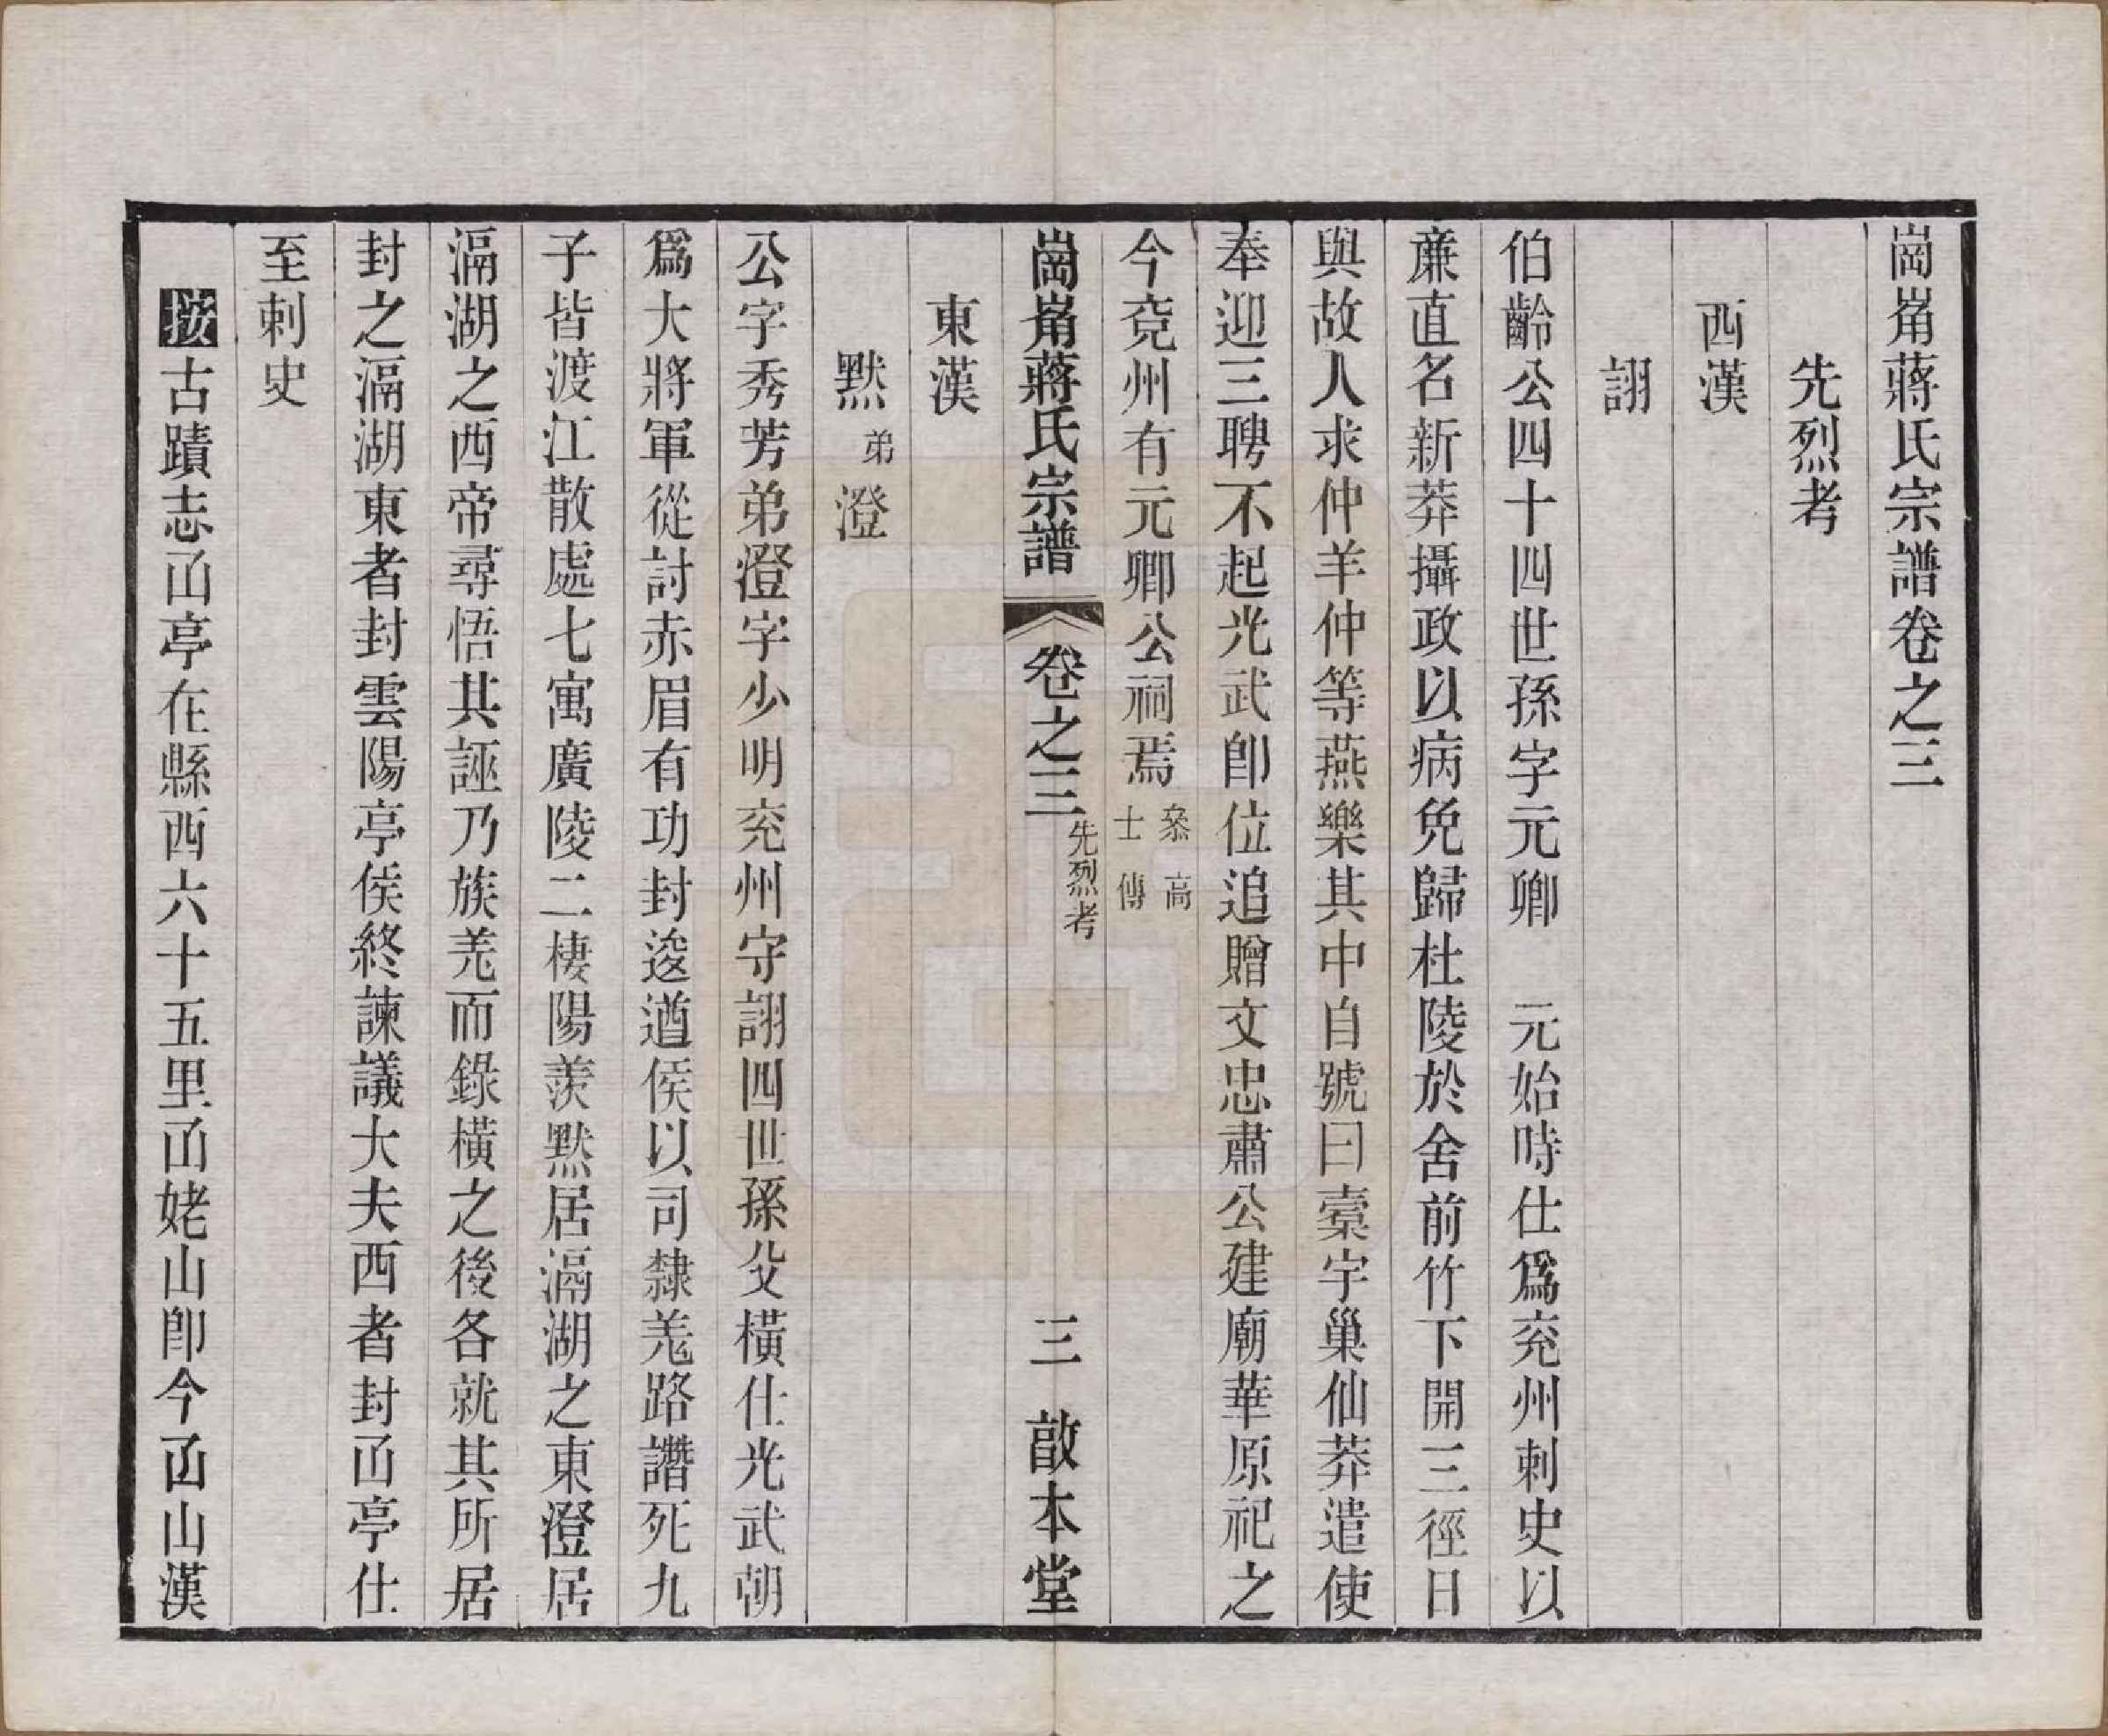 崗崙蔣氏宗譜卷之三
先烈考
西漢
詡
伯齡公四十四世孫字元卿　元始時仕爲兖州刺史以
亷直名新莽攝政以病免歸杜陵於舍前竹下開三徑日
與故人求仲羊仲等燕樂其中自號曰槖宇巢仙莽遣使
奉迎三聘不起光武卽位追贈文忠肅公建廟華原祀之
今兖州有元卿公祠焉叅高士傳
崗崙蔣氏宗譜　卷之三　先烈考　三　啟本堂
東漢
黙弟澄
公字秀芳弟澄字少明兖州守詡四世孫父橫仕光武朝
爲大將軍從討赤眉有功封逡遒侯以司隸羌路譖死九
子皆渡江散處七寓廣陵二棲陽羨黙居滆湖之東澄居
滆湖之西帝尋悟其誣乃族羌而錄橫之後各就其所居
封之滆湖東者封雲陽亭侯終諫議大夫西者封㐭亭仕
至刺史
按古蹟志㐭亭在縣西六十五里㐭姥山卽今㐭山漢